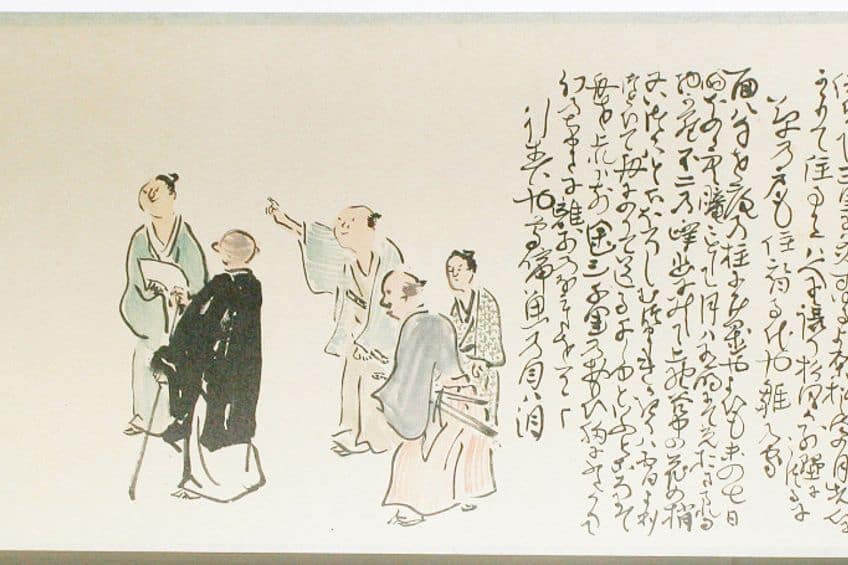 草の戸も住替る代そ雛の家
面八句を庵の柱に懸置やよひも末の七日
明ほのゝ空朧々として月は有明にて光おさまれる
物から不二の峰幽に見て上野谷中の花の梢
又いつかはと心ほそしむつましきかきりは宵より
つとひて舟にのりて送る千しゆといふところにて
舟を上れは前途三千里のおもひ胸にふさかりて
幻のちまたに離別のなみたをそゝく
行春や鳥啼魚の目は泪